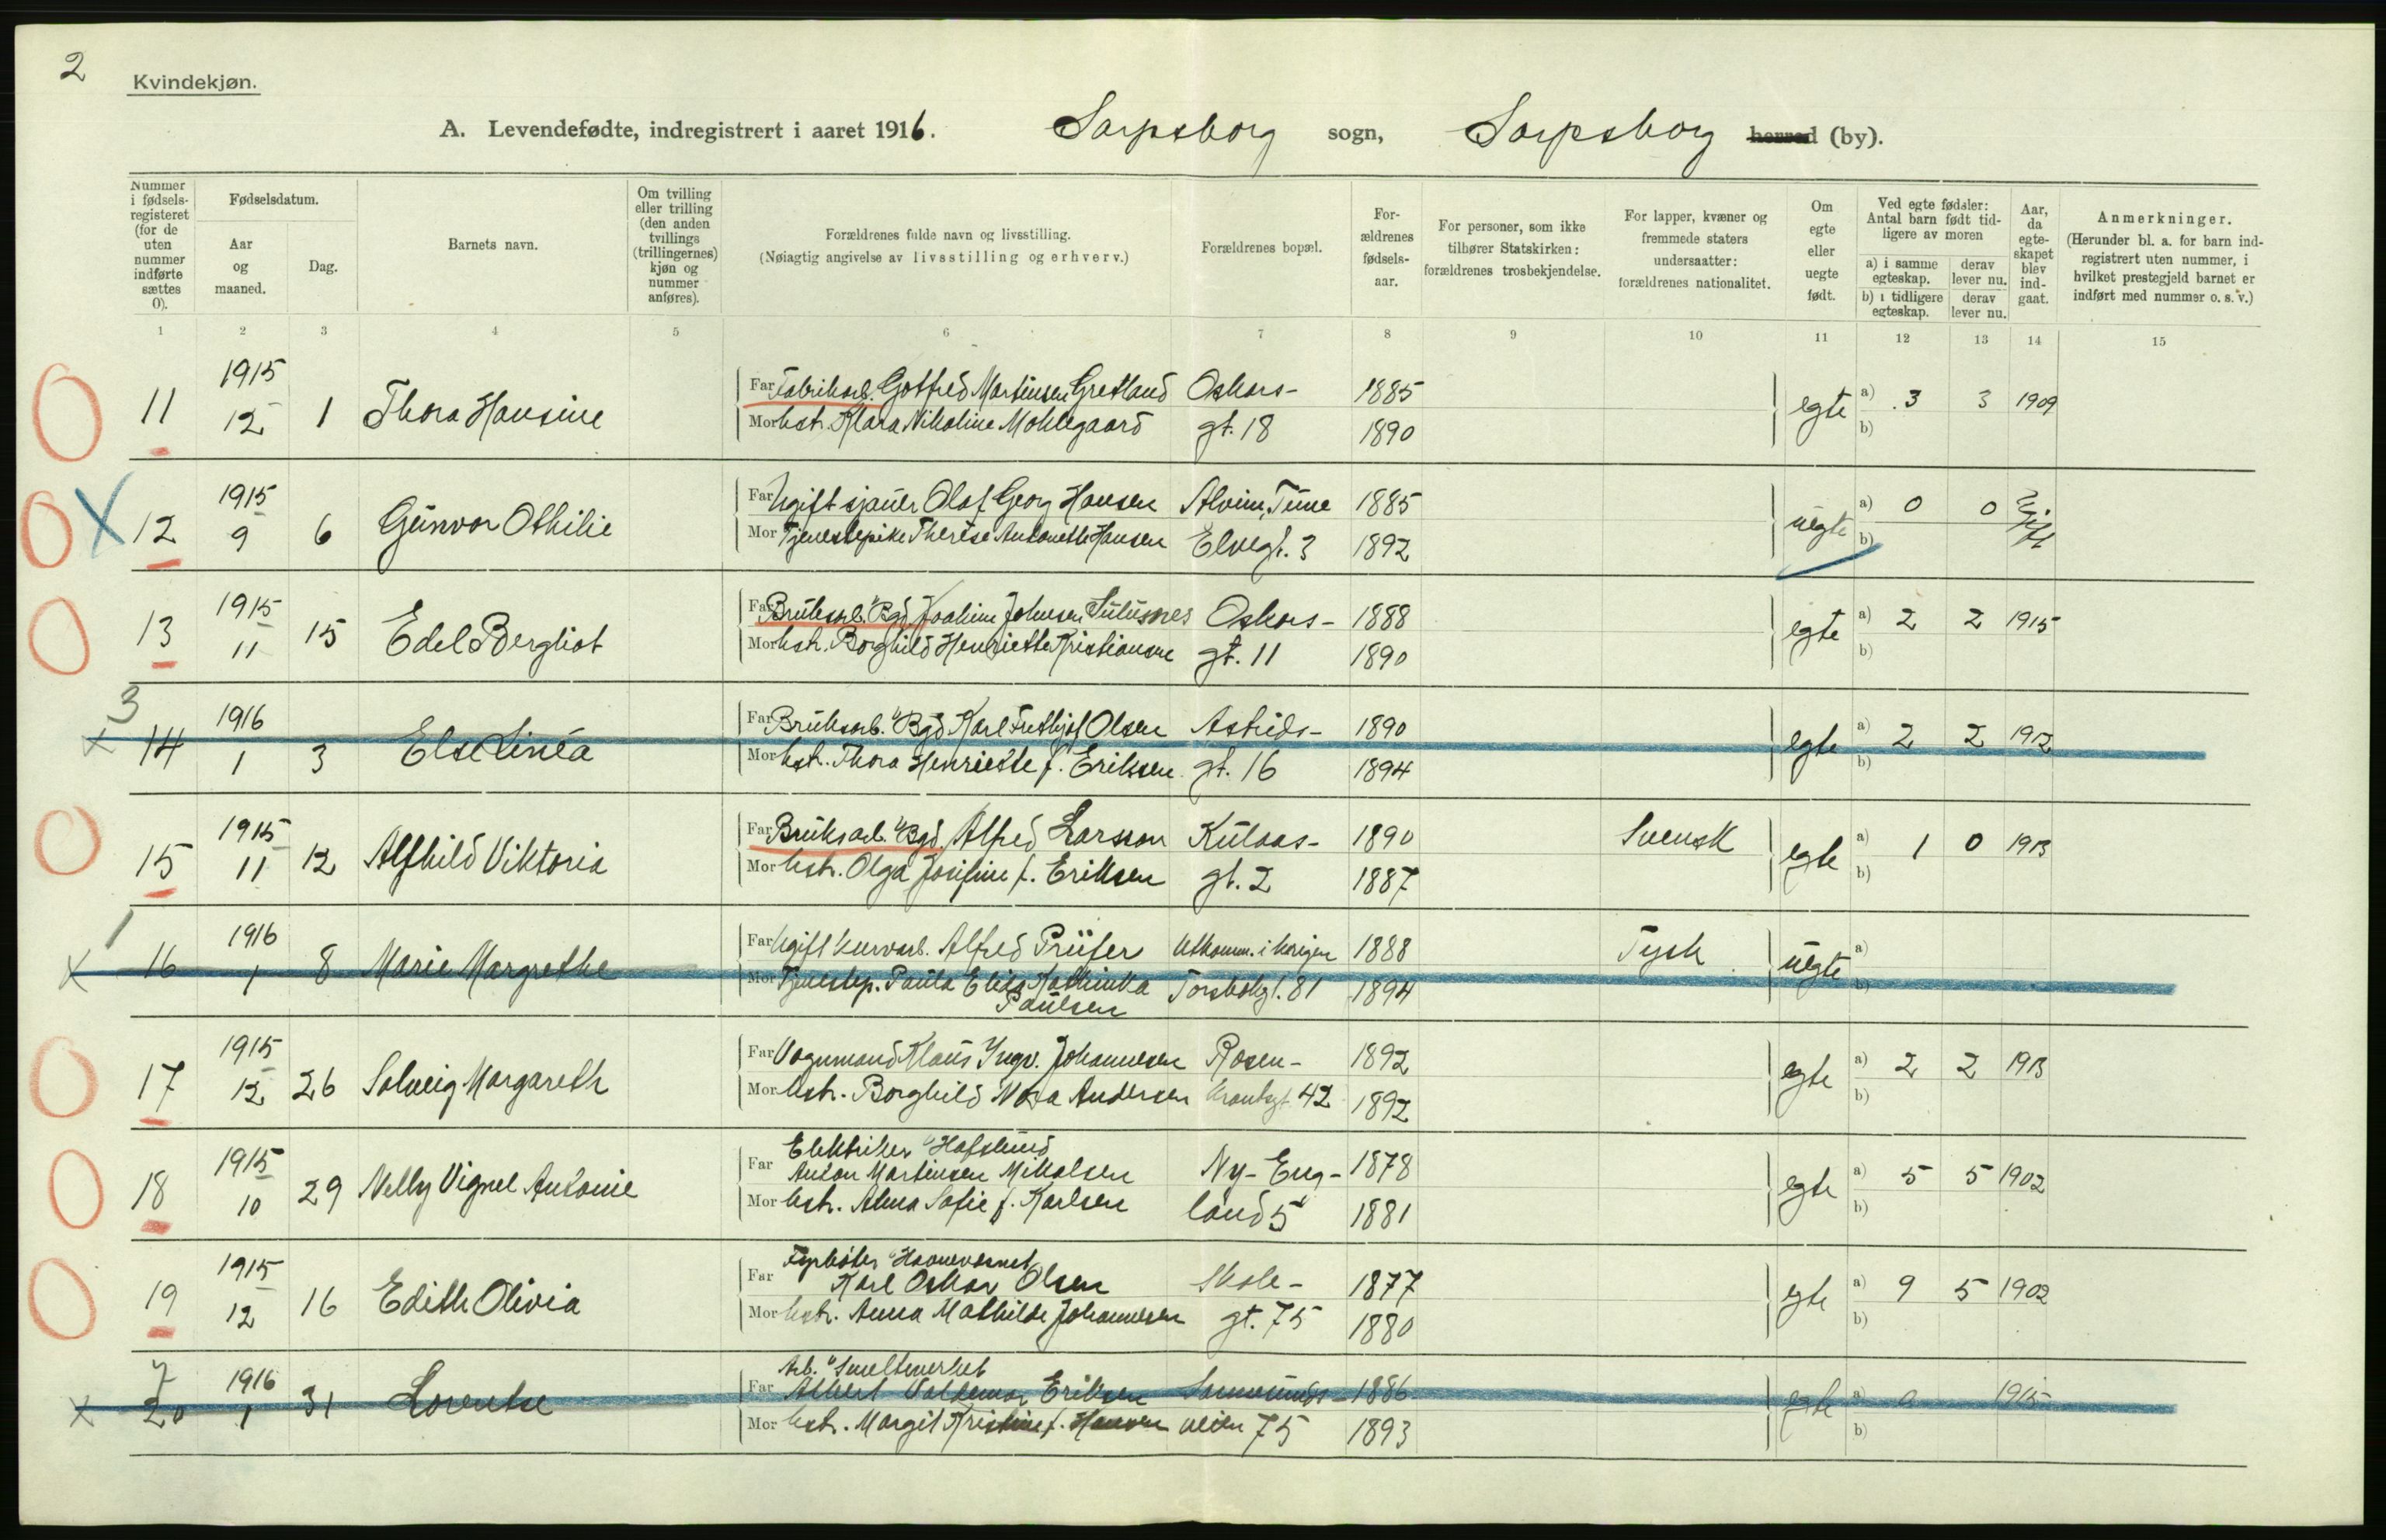 2
Kvindekjøn.
A. Levendefødte, indregistrert i aaret 1916. Sarpsborg sogn, Sarpsborg herred (by).
Nummer i fødsels-registeret (for de uten nummer indførte sættes 0).
Fødselsdatum.
Aar og maaned.
Dag.
Barnets navn.
Om tvilling eller trilling (den anden tvillings (trillingernes) kjøn og nummer anføres).
Forældrenes fulde navn og livsstilling.
(Nøiagtig angivelse av livsstilling og erhverv.)
Forældrenes bopæl.
For-ældrenes fødsels-aar.
For personer, som ikke tilhører Statskirken: forældrenes trosbekjendelse.
For lapper, kvæner og fremmede staters undersaatter: forældrenes nationalitet.
Om egte eller uegte født.
Ved egte fødsler: Antal barn født tid-ligere av moren
a) i samme egteskap. derav lever nu.
b) i tidligere egteskap. derav lever nu.
Aar, da egte-skapet blev ind-gaat.
Anmerkninger.
(Herunder bl. a. for barn ind-registrert uten nummer, i hvilket prestegjeld barnet er indført med nummer o. s. v.)
1 2 3 4 5 6 7 8 9 10 11 12 13 14 15
11 1915 12 1 Thora Hansine
Far Fabrikarb. Gotfred Martinsen Gretland Oskars- 1885 egte a) 3 3 1909
Mor Hstr. Klara Nikoline Moklegaard gt. 18 1890 b)
12 1915 9 6 Gunvor Othilie
Far Ugift sjauer Olaf Georg Hansen Alvim, Tune 1885 uegte a) 0 0 Ugift
Mor Tjenestepike Therese Antonette Hansen Elvegt. 3 1892 b)
13 1915 11 15 Edel Bergliot
Far Bruksarb. "Bgd Joakim Johnsen Oskars- 1888 egte a) 2 2 1915
Mor Hstr. Borghild Henriette Kristiansen gt. 11 1890 b)
3
x 14 1916 1 3 Else Linéa
Far Bruksarb. "Bgd Karl Frithjof Olsen Astrids- 1890 egte a) 2 2 1912
Mor Hstr. Thora Henriette f. Eriksen gt. 16 1894 b)
15 1915 11 12 Alfhild Viktoria
Far Bruksarb. "Bgd. Alfred Larsson Kulaas- 1890 Svensk egte a) 1 0 1913
Mor Hstr. Olga Josifine f. Eriksen gt. 2 1887 b)
1
x 16 1916 1 8 Marie Margrethe
Far Ugift kurvarb. Alfred Prüfer Utkomm. i krigen 1888 Tysk uegte a)
Mor Tjenestep. Paula Elida Kathinka Paulsen Torsbekgt. 81 1894 b)
17 1915 12 26 Solveig Margareth
Far Vognmand Klaus Yngv. Johannesen Rosen- 1892 egte a) 2 2 1913
Mor Hstr. Borghild Nora Andersen krantsgt. 42 1892 b)
18 1915 10 29 Nelly Vignel Antonie
Elektriker "Hafslund
Far Anton Martinsen Mikalsen Ny-Eng- 1878 egte a) 5 5 1902
Mor Hstr. Anna Sofie f. Karlsen land 5 1881 b)
19 1915 12 16 Edith Olivia
Fyrbøter "Havnevæsnet
Far Karl Oskar Olsen Skole- 1877 egte a) 9 5 1902
Mor Hstr. Anna Mathilde Johannesen gt. 75 1880 b)
x 20 1916 1 31 Lorentse
Arb. "Smelteverket
Far Albert Valdemar Eriksen 1886 egte a) 0 1915
Mor Hstr. Margit Kristine f. Hansen veien 75 1893 b)